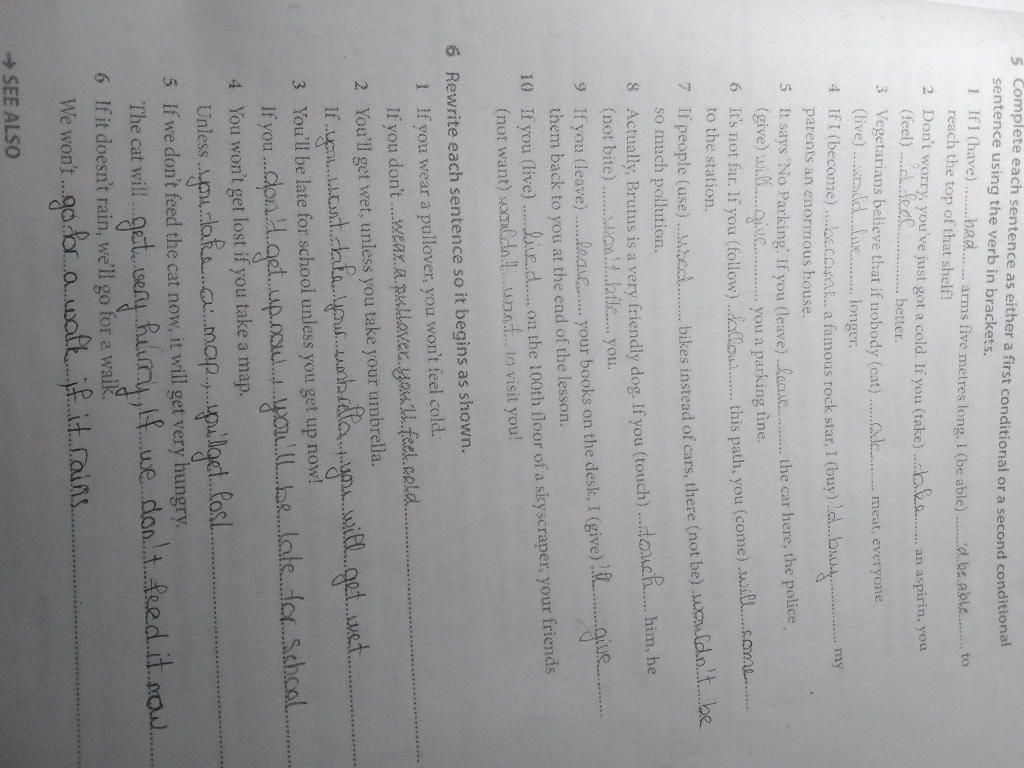 5 Complete each sentence as either a first conditional or a second conditional
sentence using the verb in brackets.
1 If I (have) ......had...... arms five metres long, I (be able) ......'d be able...... to
reach the top of that shelf!
2 Don't worry, you've just got a cold. If you (take) ...take...... an aspirin, you
(feel) ...'ll feel............ better.
3 Vegetarians believe that if nobody (eat) ......ate...... meat, everyone
(live) ...would live...... longer.
4 If I (become) ...became... a famous rock star, I (buy) 'd buy............ my
parents an enormous house.
5 It says 'No Parking'. If you (leave) ..leave......... the car here, the police
(give) will...give......... you a parking fine.
6 It's not far. If you (follow) ..follow...... this path, you (come) will...come......
to the station.
7 If people (use) ...used...... bikes instead of cars, there (not be) wouldn't be
so much pollution.
8 Actually, Brutus is a very friendly dog. If you (touch) ...touch...... him, he
(not bite) ......won't bite... you.
9 If you (leave) ......leave... your books on the desk, I (give) 'll......give......
them back to you at the end of the lesson.
10 If you (live) ......lived... on the 100th floor of a skyscraper, your friends
(not want) wouldn't want... to visit you!
6 Rewrite each sentence so it begins as shown.
1 If you wear a pullover, you won't feel cold.
If you don't ...wear a pullover you'll feel cold............
2 You'll get wet, unless you take your umbrella.
If you won't take your umbrella, you will get wet......
3 You'll be late for school unless you get up now!
If you ...don't get up now, you'll be late for school......
4 You won't get lost if you take a map.
Unless ..you take a map, you'll get lost............
5 If we don't feed the cat now, it will get very hungry.
The cat will ...get very hungry, if we don't feed it now
6 If it doesn't rain, we'll go for a walk.
We won't ...go for a walk, if it rains............
→ SEE ALSO